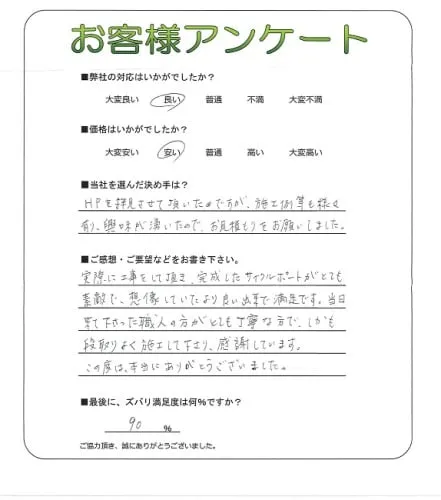 お客様アンケート
■弊社の対応はいかがでしたか?
大変良い 良い 普通 不満 大変不満
■価格はいかがでしたか?
大変安い 安い 普通 高い 大変高い
■当社を選んだ決め手は?
HPを拝見させて頂いたのですが、施工例等も様々
有り、興味が湧いたので、お見積もりをお願いしました。
■ご感想・ご要望などをお書き下さい。
実際に工事をして頂き、完成したサイクルポートがとても
素敵で、想像していたより良い出来で満足です。当日
来て下さった職人の方がとても丁寧な方で、しかも
段取りよく施工して下さり、感謝しています。
この度は、本当にありがとうございました。
■最後に、ズバリ満足度は何%ですか?
90 %
ご協力頂き、誠にありがとうございました。